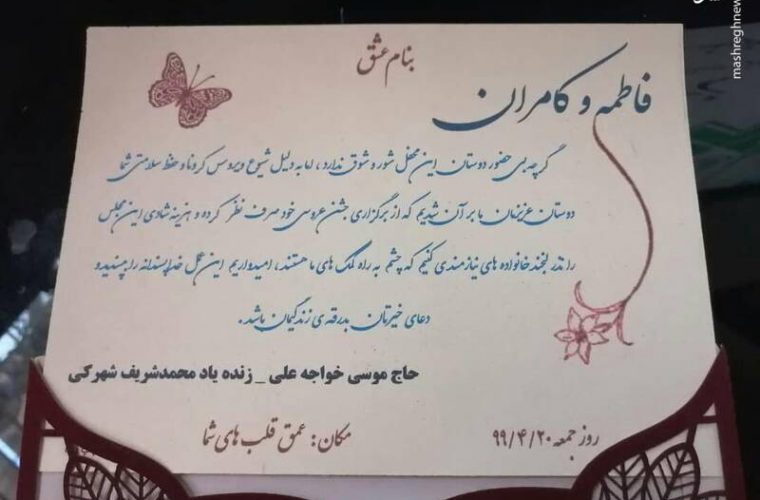 بنام عشق
فاطمه و کامران
گرچه بی حضور دوستان این محفل شور و شوق ندارد، اما به دلیل شیوع ویروس کرونا و حفظ سلامتی شما
دوستان عزیزمان بر آن شدیم که از برگزاری جشن عروسی خود صرف نظر کرده و هزینه شادی این مجلس
را نذر لبخند خانواده های نیازمندی کنیم که چشم به راه کمک های ما هستند، امیدواریم این عمل خداپسندانه را بپسندید و
دعای خیرتان بدرقه ی زندگیمان باشد.
حاج موسی خواجه علی _ زنده یاد محمدشریف شهرکی
روز جمعه ۹۹/۴/۲۰
مکان: عمق قلب های شما
mashreghnew